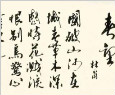 春望
杜甫
國破山河在
城春草木深
感時花濺淚
恨別鳥驚心